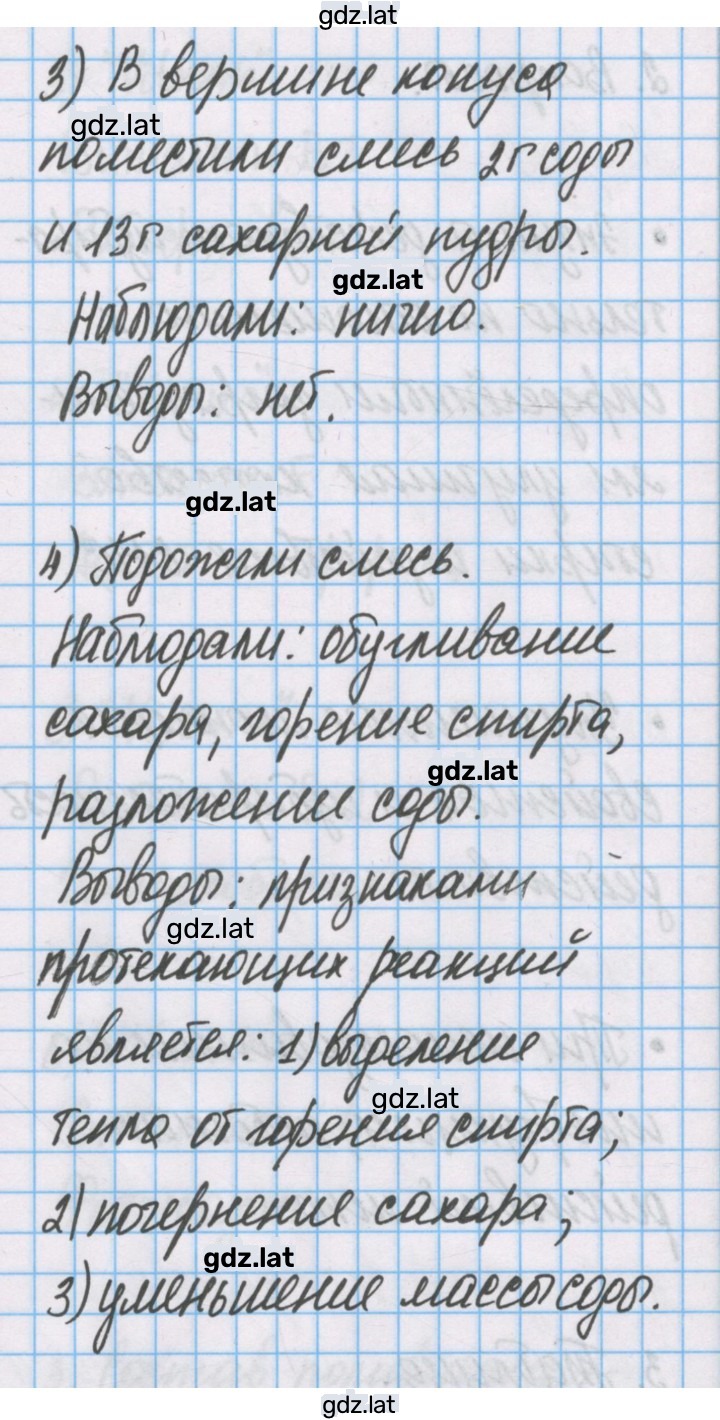 gdz.lat
3) В вершине конуса
gdz.lat
поместили смесь 2г соды
и 13г. сахарной пудры.
gdz.lat
Наблюдали: ничего.
Выводы: нет.
gdz.lat
4) Подожгли смесь.
Наблюдали: обугливание
сахара, горение спирта,
gdz.lat
разложение соды.
Выводы: признаками
gdz.lat
протекающих реакций
является: 1) выделение
gdz.lat
тепла от горения спирта;
2) почернение сахара;
gdz.lat
3) уменьшение массы соды.
gdz.lat